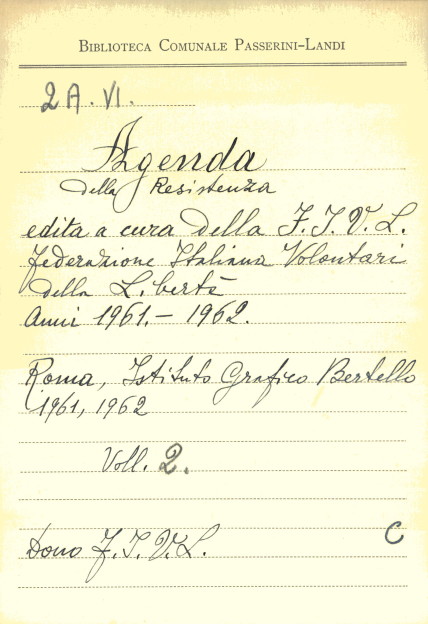 BIBLIOTECA COMUNALE PASSERINI-LANDI
2 A. VI.
Agenda
della Resistenza
edita a cura della F. I. V. L.
Federazione Italiana Volontari
della Libertà
Anni 1961. - 1962.
Roma, Istituto Grafico Bertello
1961, 1962
Voll. 2.
Dono F. I. V. L.
C